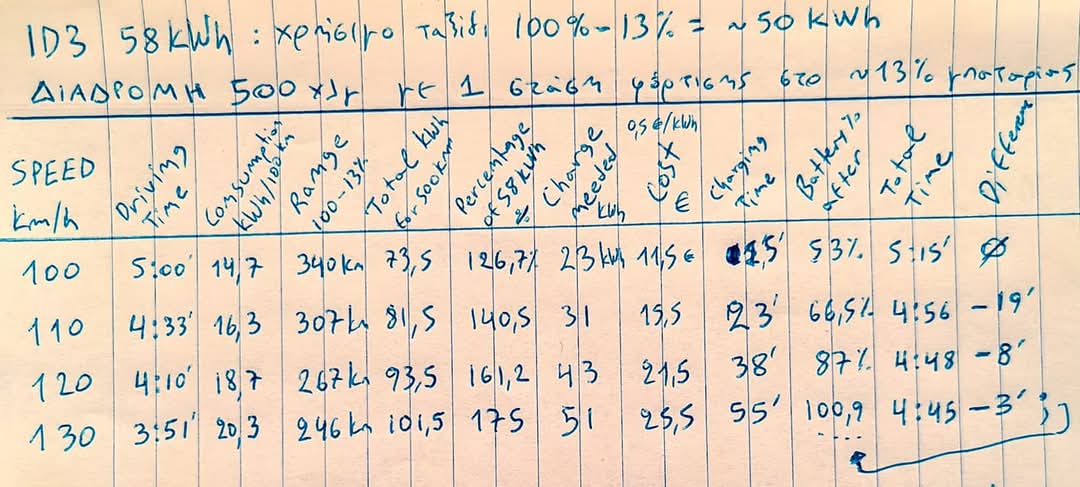 ID3 58kWh : χρήσιμο ταξίδι 100%-13% = ~50 kWh
ΔΙΑΔΡΟΜΗ 500 χλμ με 1 στάση φόρτισης στο ~13% μπαταρίας
SPEED Km/h Driving Time Consumption kWh/100km Range 100-13% Total kWh for 500km Percentage of 58kWh % Charge needed kWh 0,5 €/kWh Cost € Charging Time Battery% after Total Time Difference
100 5:00' 14,7 340km 73,5 126,7% 23kWh 11,5€ 15' 53% 5:15' Ø
110 4:33' 16,3 307km 81,5 140,5 31 15,5 23' 66,5% 4:56 -19'
120 4:10' 18,7 267km 93,5 161,2 43 21,5 38' 87% 4:48 -8'
130 3:51' 20,3 246km 101,5 175 51 25,5 55' 100,9 4:45 -3' ;